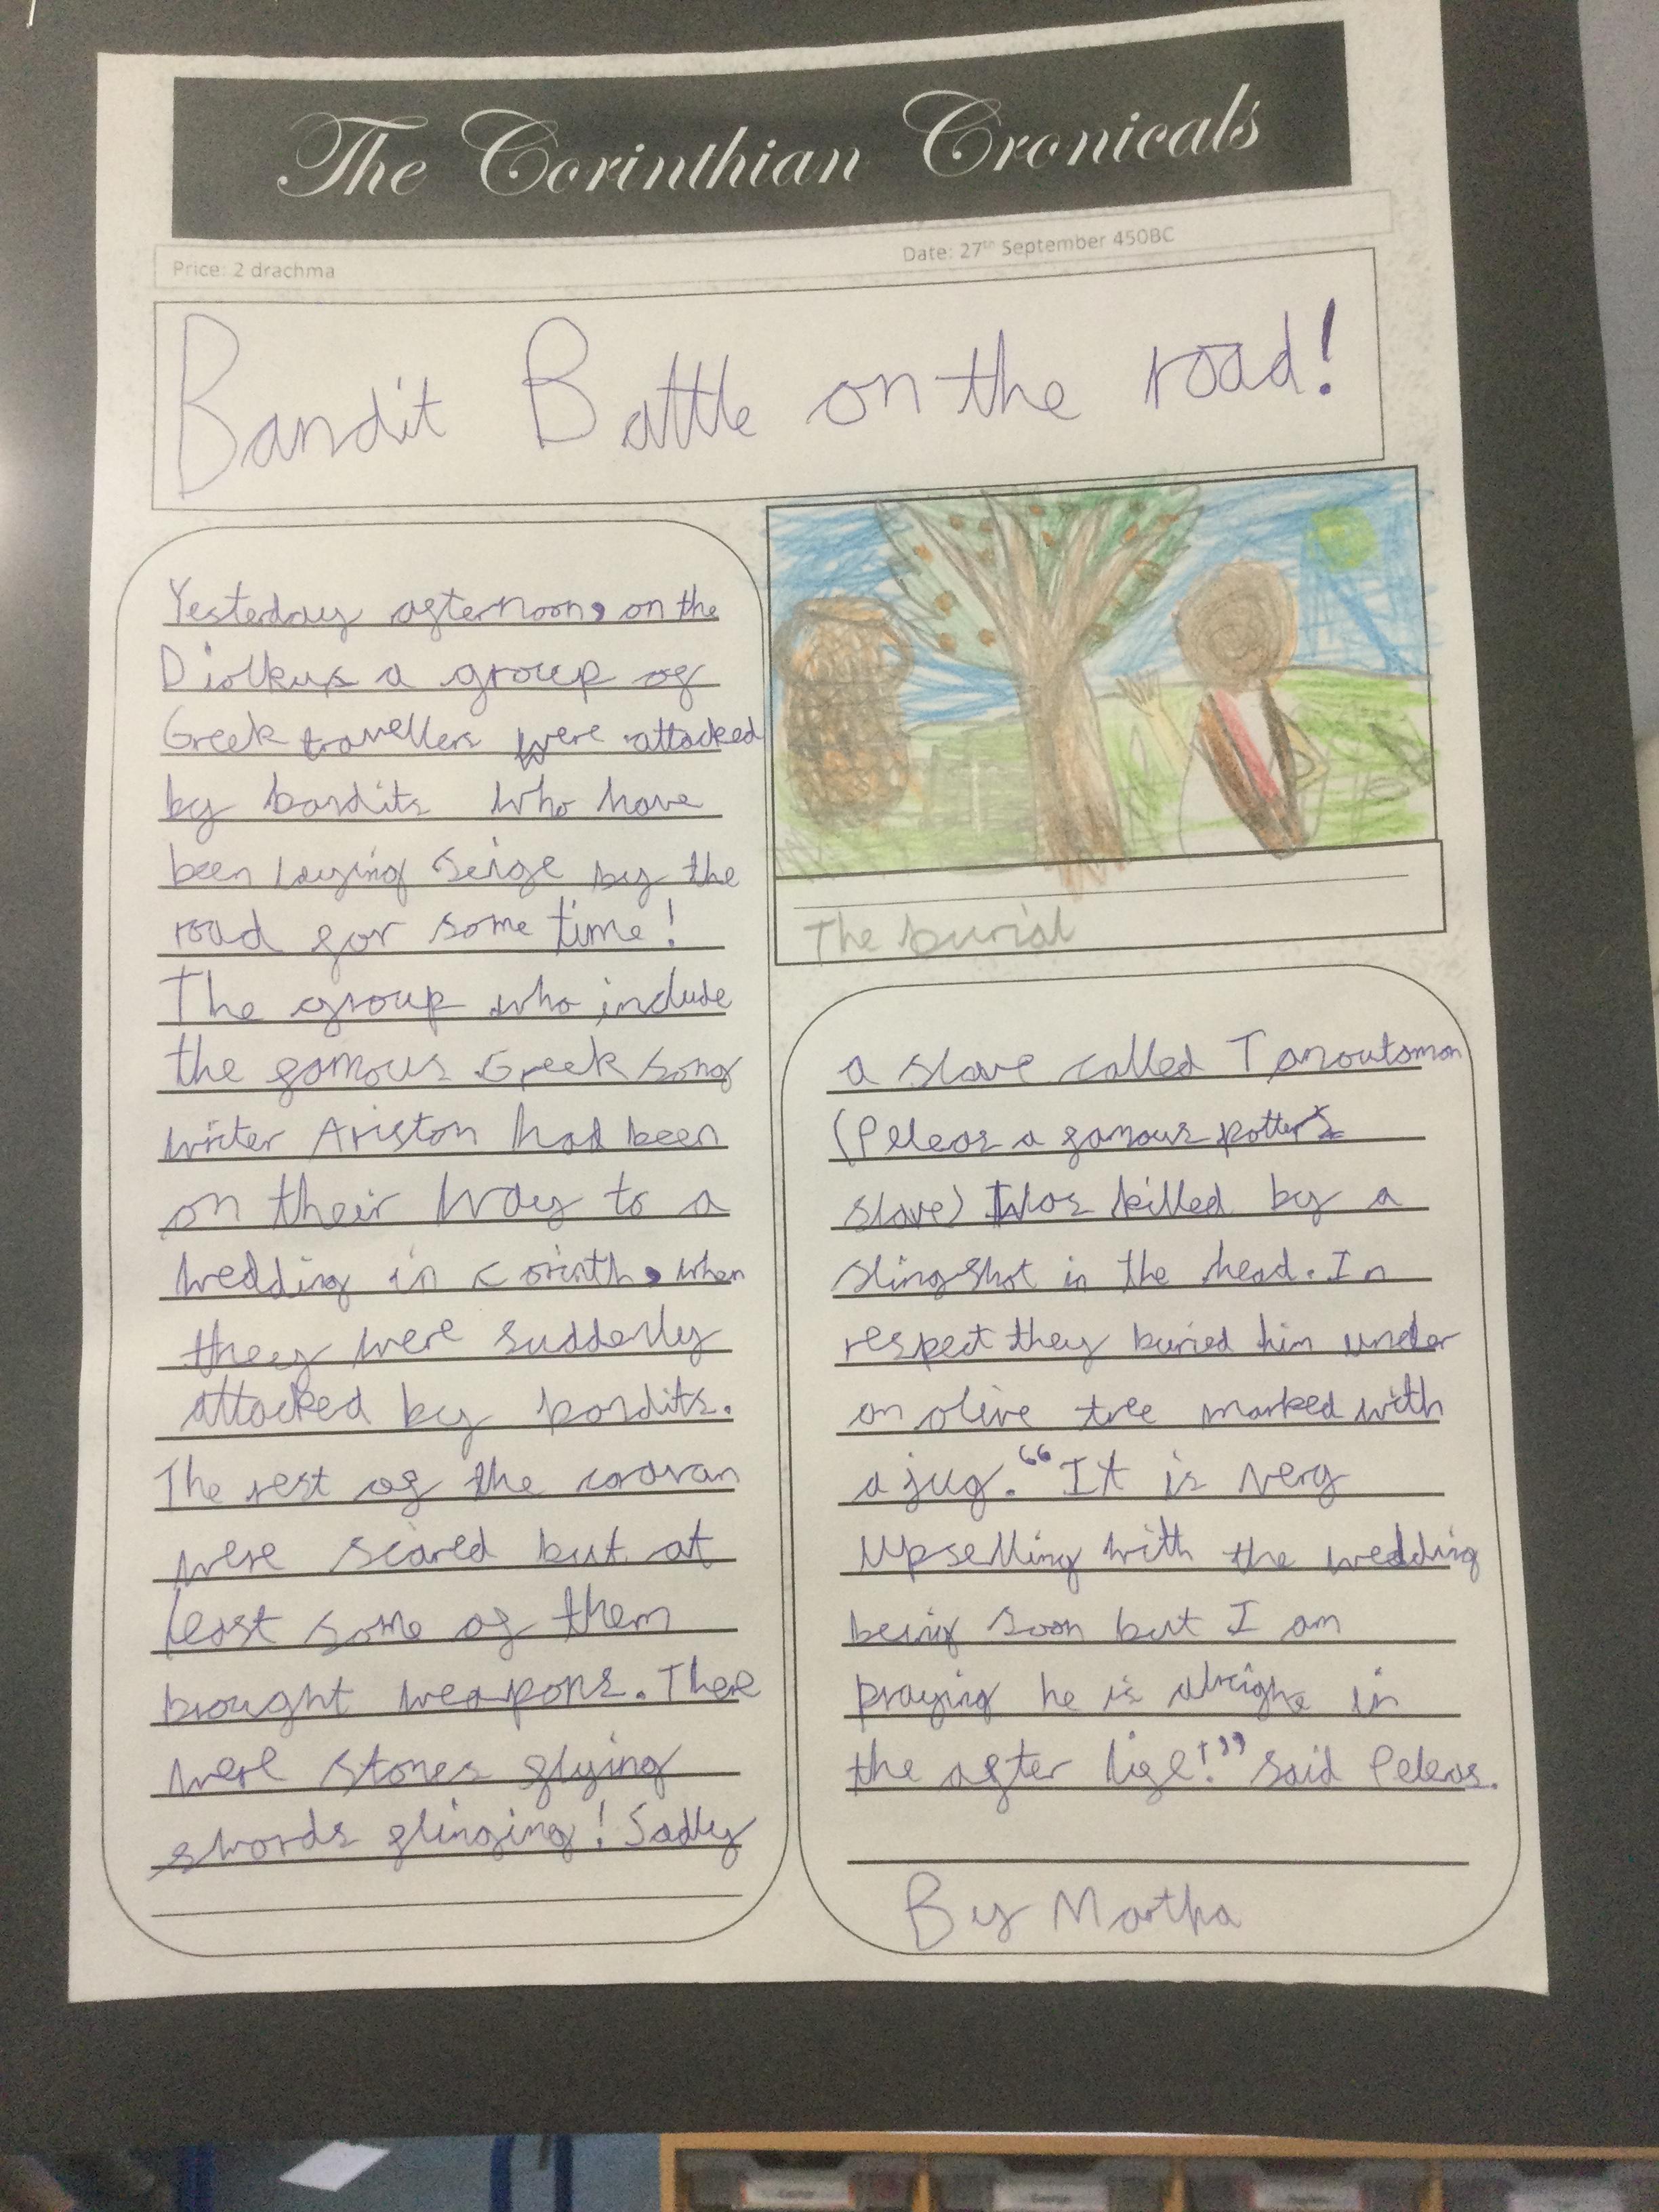 The Corinthian Cronicals
Price: 2 drachma
Date: 27th September 450BC
Bandit Battle on the road!
Yesterday afternoon, on the
Diolkus a group of
Greek travellers were attacked
by bandits who have
been laying seige by the
road for some time!
The group who include
the famous Greek song
writer Ariston had been
on their way to a
wedding in Corinth, when
they were suddenly
attacked by bandits.
The rest of the caravan
were scared but at
least some of them
brought weapons. There
were stones flying
swords flinging! Sadly
The burial
a slave called Tanoutamon
(Peleas a famous potter's
slave) Was killed by a
slingshot in the head. In
respect they buried him under
an olive tree marked with
a jug. "It is very
Upselling with the wedding
being soon but I am
praying he is alright in
the after life!" said Peleas.
By Martha